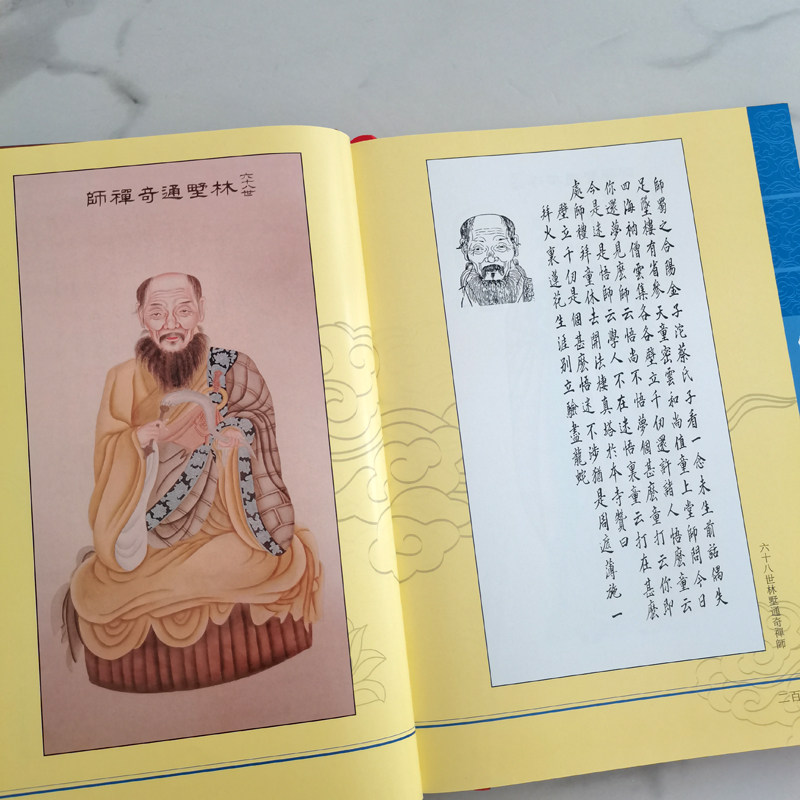 六十八世
林墅通奇禪師
師蜀之合陽金子沱蔡氏子看一念未生前話偶失
足墜樓有省參天童密雲和尚值童上堂師問今日
四海衲僧雲集各各壁立千仞還許諸人悟麼童云
你還夢見麼師云悟尚不悟夢個甚麼童打云你即
今是迷是悟師云學人不在迷悟裏童云打在甚麼
處師禮拜童休去開法棲真塔於本寺贊曰
壁立千仞是個甚麼悟迷不涉猶是周遮薄施一
拜火裏蓮花生涯別立驗盡龍蛇
六十八世林墅通奇禪師
二百